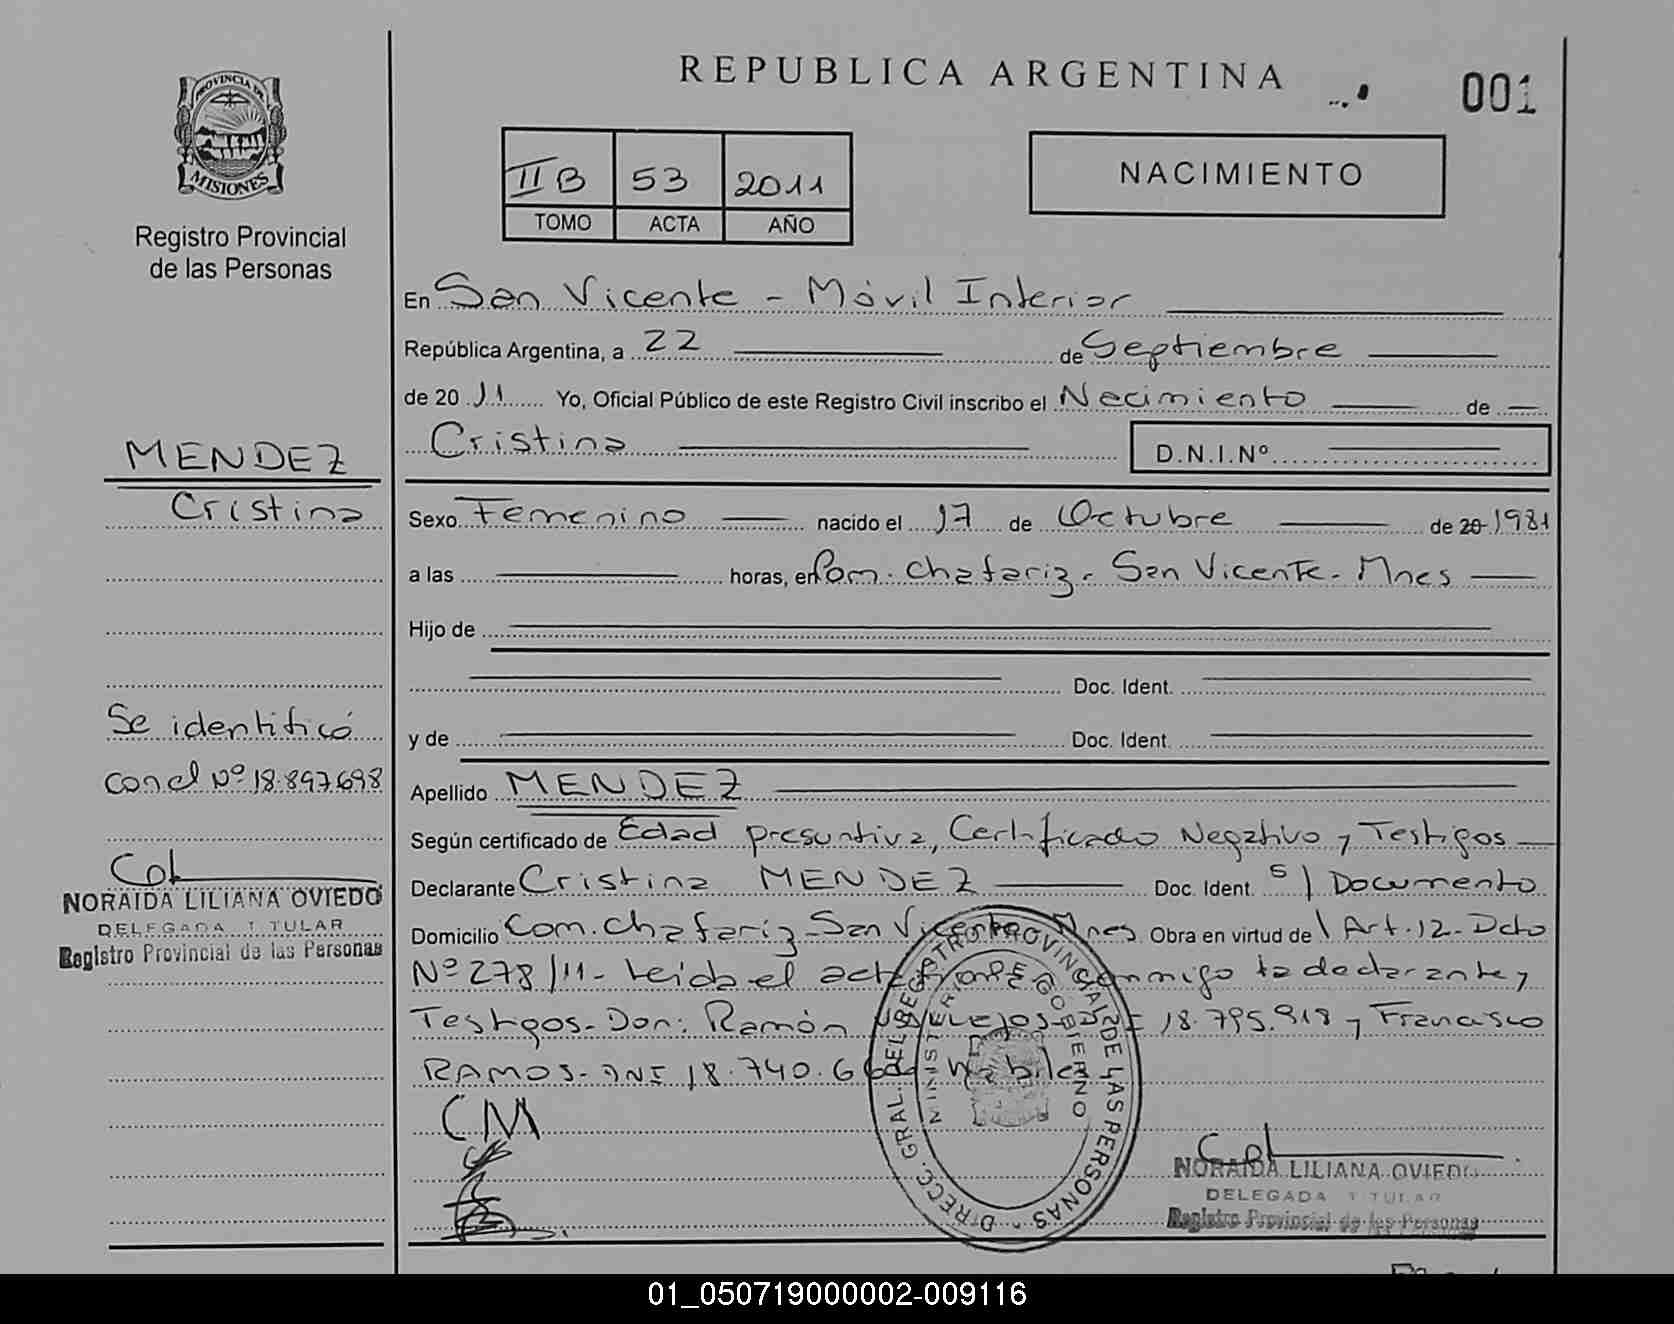 REPUBLICA ARGENTINA
001
PROVINCIA DE
MISIONES
Registro Provincial
de las Personas
II B 53 2011
TOMO ACTA AÑO
NACIMIENTO
En San Vicente - Móvil Interior
República Argentina, a 22 de Septiembre
de 20 11 Yo, Oficial Público de este Registro Civil inscribo el Nacimiento de
Cristina D.N.I.Nº
MENDEZ
Cristina
Sexo Femenino nacido el 17 de Octubre de 20 1981
a las horas, en Com. Chafariz - San Vicente - Mnes
Hijo de
Doc. Ident.
y de Doc. Ident.
Se identificó
con el Nº 18.897.698
Apellido MENDEZ
Según certificado de Edad presuntiva, Certificado Negativo y Testigos
Declarante Cristina MENDEZ Doc. Ident. S/ Documento
Domicilio Com. Chafariz - San Vicente Mnes. Obra en virtud del Art. 12 - Dcto
Nº 278/11 - Leida el acta firma conmigo la declarante y
Testigos - Don: Ramón 18.795.918 y Francisco
RAMOS - DNI 18.740.
CM
NORAIDA LILIANA OVIEDO
DELEGADA TITULAR
Registro Provincial de las Personas
DIRECC. GRAL. DEL REGISTRO PROVINCIAL DE LAS PERSONAS
MINISTERIO DE GOBIERNO
NORAIDA LILIANA OVIEDO
DELEGADA TITULAR
Registro Provincial de las Personas
01_050719000002-009116